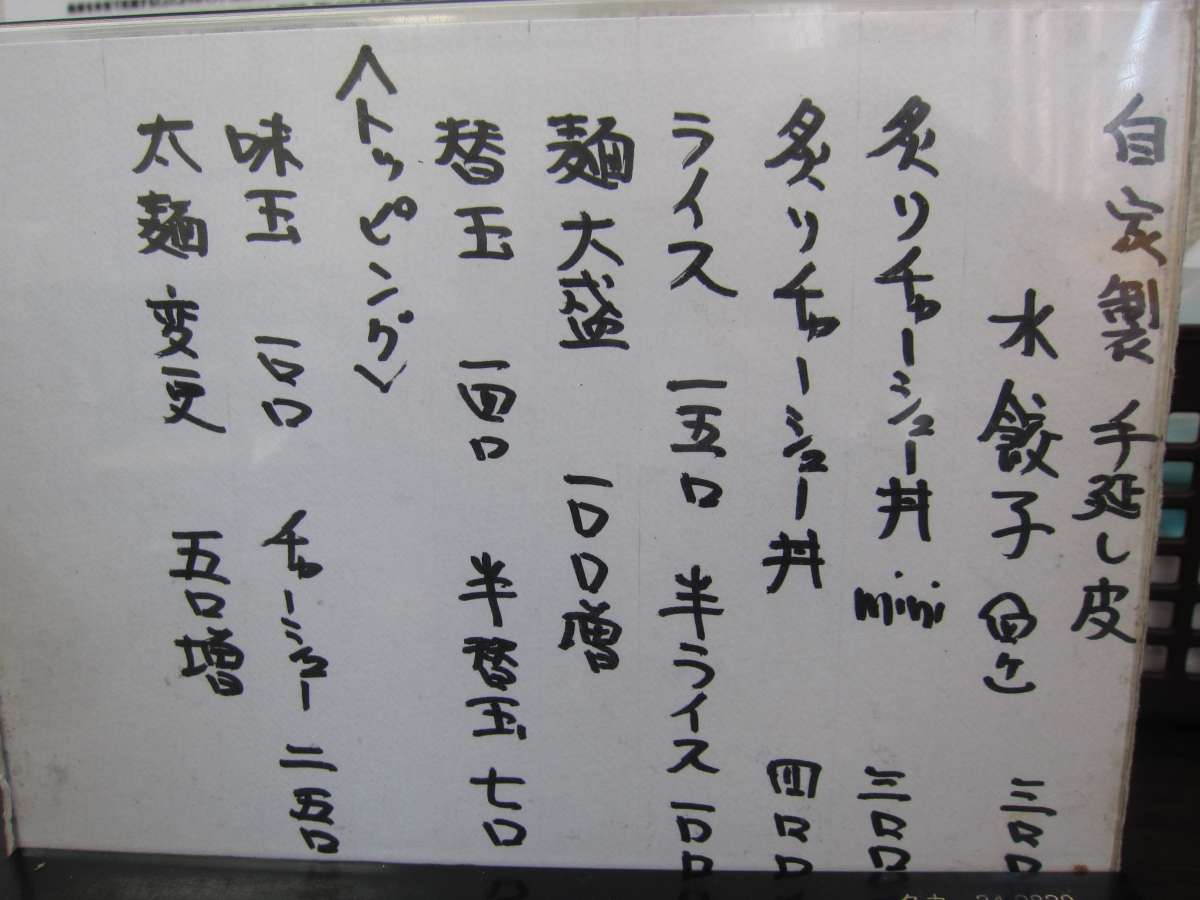 自家製 手延し皮
水餃子(四ケ) 三〇〇
炙りチャーシュー丼 mini 三〇〇
炙りチャーシュー丼 四〇〇
ライス 一五〇 半ライス 一〇〇
麺大盛 一〇〇増
替玉 一四〇 半替玉 七〇
〈トッピング〉
味玉 一〇〇 チャーシュー 二五〇
太麺変更 五〇増